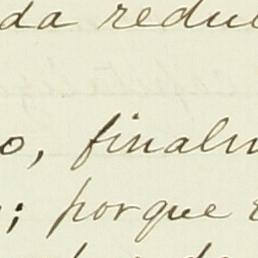 da redu
o, finalm
; porque